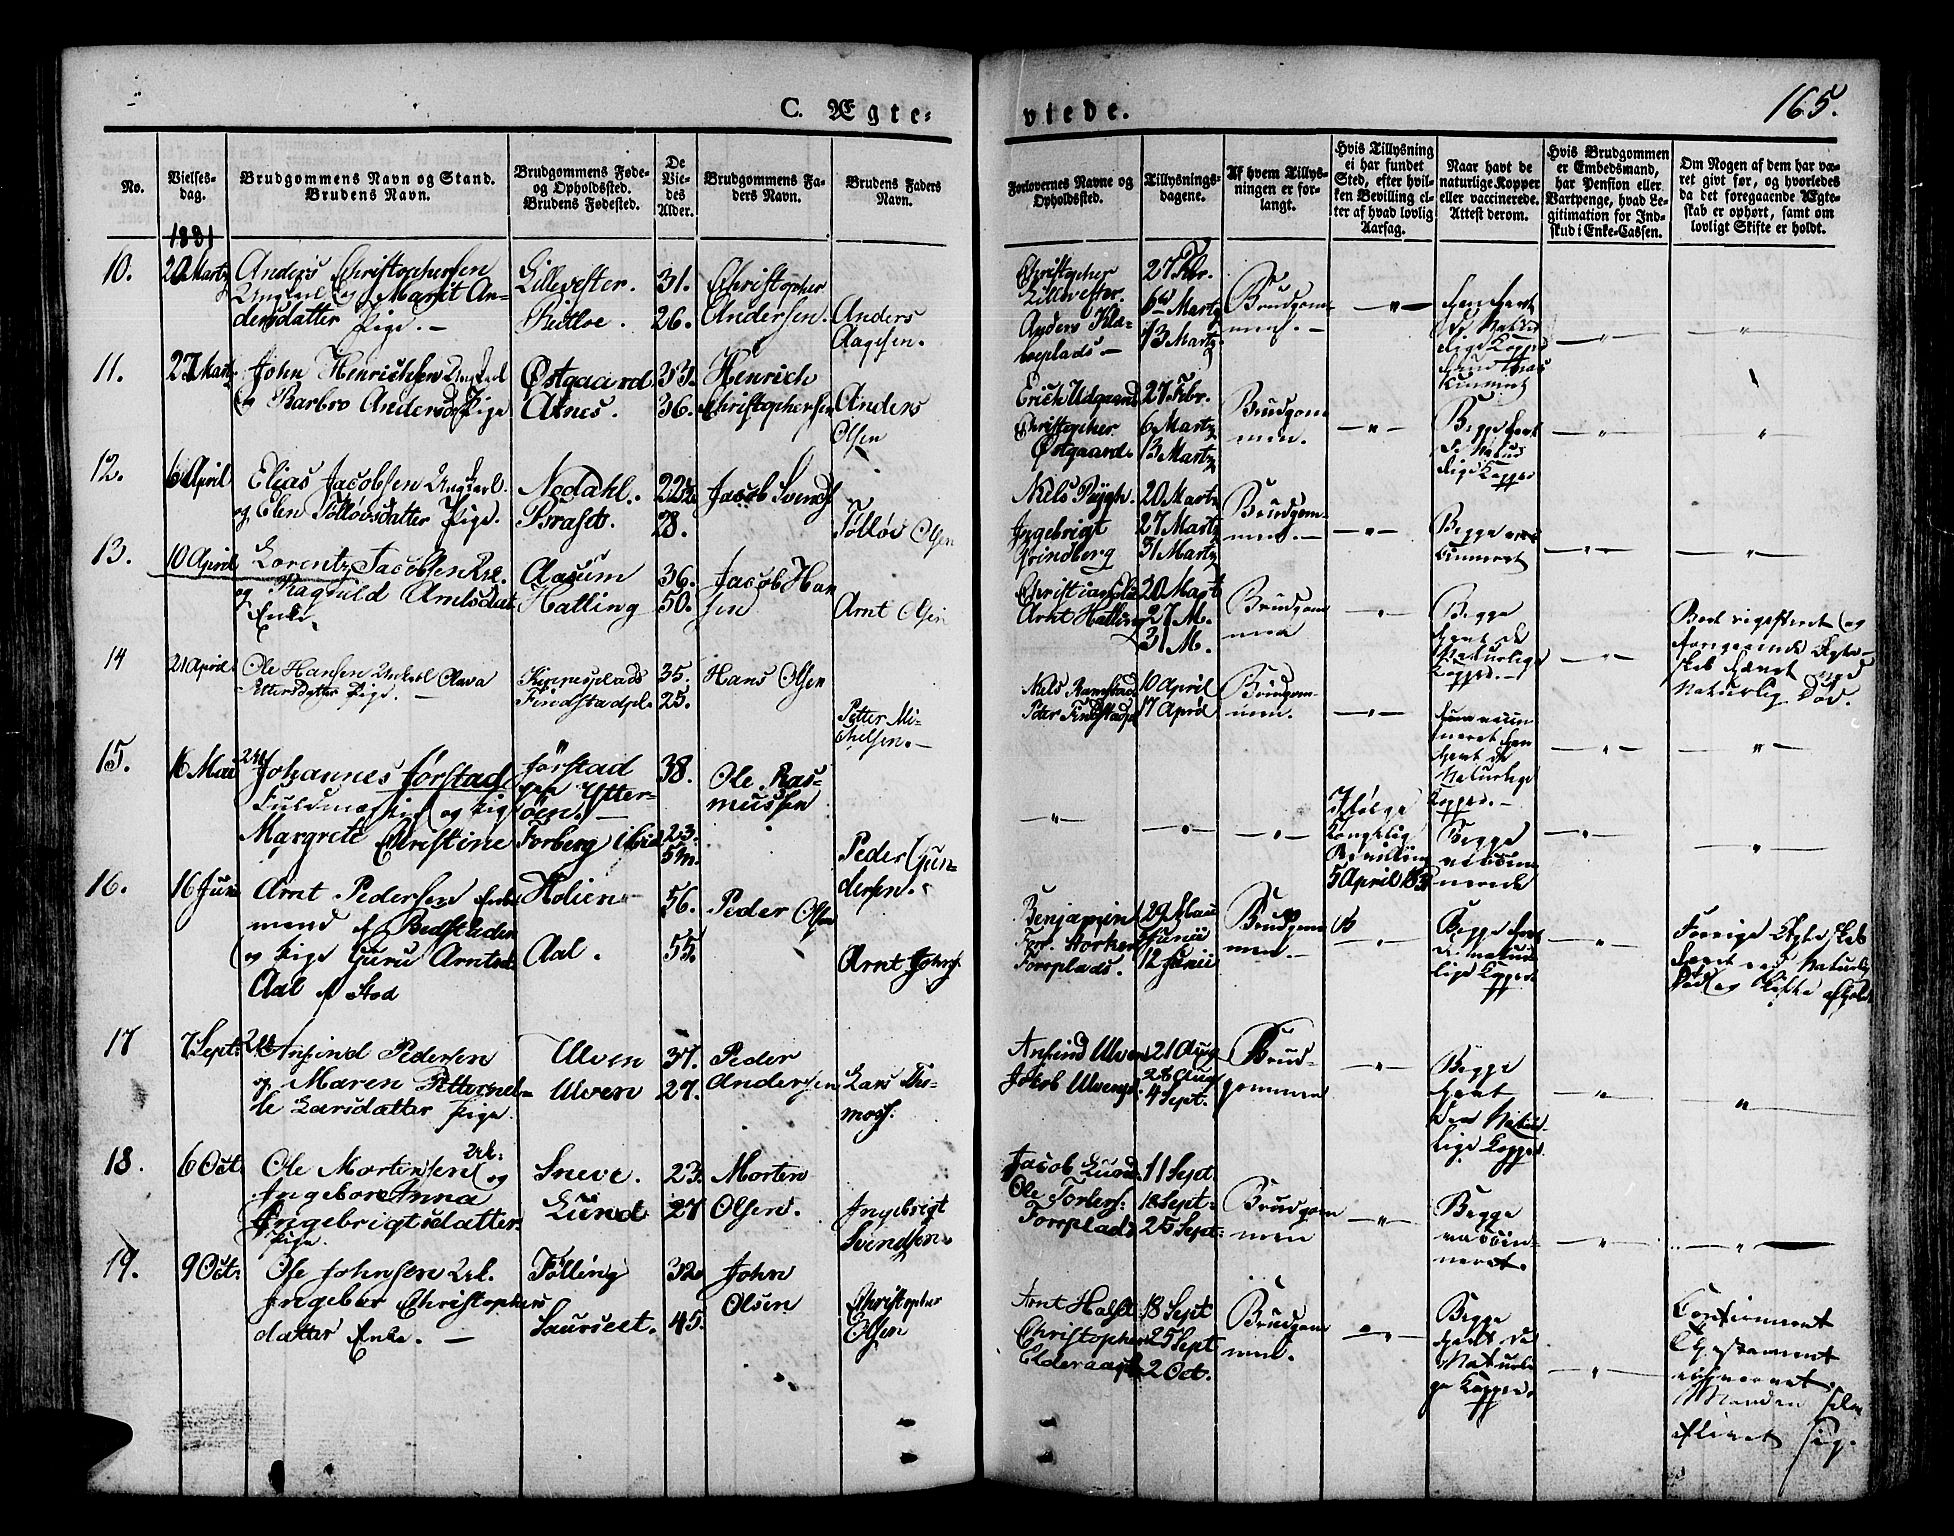 C. Ægte-
viede.
165.
No.
Vielses-
dag.
Brudgommens Navn og Stand.
Brudens Navn.
Brudgommens Føde-
og Opholdssted.
Brudens Fødested.
De
Vie-
des
Alder.
Brudgommens Fa-
ders Navn.
Brudens Faders
Navn.
Forlovernes Navne og
Opholdssted.
Tillysnings-
dagene.
Af hvem Tillys-
ningen er for-
langt.
Hvis Tillysning
ei har fundet
Sted, efter hvil-
ken Bevilling el-
ler af hvad lovlig
Aarsag.
Naar havt de
naturlige Kopper
eller vaccinerede.
Attest derom.
Hvis Brudgommen
er Embedsmand,
har Pension eller
Vartpenge, hvad Le-
gitimation for Ind-
skud i Enke-Cassen.
Om Nogen af dem har væ-
ret givt før, og hvorledes
da det foregaaende Ægte-
skab er ophørt, samt om
lovligt Skifte er holdt.
1831
10.
20 Martz
Anders Christophersen
Ungkarl og Marit An-
dersdatter Pige. —
Lillevester.
31.
26.
Christopher
Andersen.
Anders
Aagesen.
Christopher
Lillevester.
Anders
27 Febr.
6te Martz
13 Martz
Brudgom-
men. —
11.
27 Martz
John Henrichsen Ungkarl
og Barbro Andersd. Pige
Østgaard
Aanes.
33.
36.
Henrich
Christophersen
Anders
Olsen
Erich Udgaard
Christopher
Østgaard.
27 Febr.
6 Martz
13 Martz
Brudgom-
men.
Begge havt
de Natur-
lige Kopper
12.
6 April
Elias Jacobsen Ungkarl.
og Elen Tølløvsdatter Pige.
Nodahl.
22½
28.
Jacob Svends
Tølløv Olsen
Niels Rygh.
Ingebrigt
Grindberg
20 Martz
27 Martz
31 Martz
Brudgom-
men. —
Begge vac-
cineret
13.
10 April
Lorentz Jacobsen
og Ragnild Arntsdat.
Enke.
Aasum
Halling
36.
50.
Jacob Han
sen
Arnt Olsen
Arnt Halling
20 Mart
27 M.
31 M.
Brudgom
men
Begge
havt de
Naturlige
Kopper.
Naturlig Død.
14
21 April
Ole Hansen Unkarl Olava
Pettersdatter Pige. —
Kippesplads
Findstadpl.
35.
25.
Hans Olsen
Petter Mi-
chelsen. —
Niels Ramstad
Peter Findstadpl
10 April
17 April
Brudgom-
men.
havt de
Naturlige
Kopper. —
15.
16 Mai
Johannes Førstad
Fuldmægtig og Pige
Margrete Christine
Førstad
paa Ytter-
øen. —
Forberg
38.
23.
Ole Ras-
mussen
Peder Gun-
dersen.
Ifølge
Kongelig
Bevilling
5 April 183
Begge
vaccine-
rede
16.
16 Juni
Arnt Pedersen Enke
mand af Bedstaden
og Pige Guru Arntsd.
Aal af Stod
Holien
Aal.
56.
55.
Peder Olsen
Arnt Johns.
Benjamin
Forrplads.
29 Mai
5 Junii
12 Junii
Brudgom
men. —
Begge havt
de natur-
lige Kopper
Forrige Ægteskab
hævet ved Naturlig
Død og Skifte afholdt
17
7 Sept.
Anfind Pedersen
og Maren Petternel-
le Larsdatter Pige.
Ulven
Ulven
37.
27.
Peder
Andersen
Lars Tho-
mas.
Anfind Ulven
Jakob Ulvenpl.
21 Aug
28 Aug
4 Sept.
Brud-
gommen
Begge
havt
den Natur-
lige Kopper.
18.
6 Oct.
Ole Mortensen og
Ingebor Anna
Ingebrigtsdatter.
Pige.
Sneve.
Lund
23.
27
Morten
Olsen.
Ingebrigt
Svendsen.
Jacob Lund
Ole Torlers.
Forrplads
11 Sept
18 Sept
25 Sept.
Brudgom
men
Begge
vaccin-
neret.
19.
9 Oct.
Ole Johnsen
Ingebor Christophers
datter Enke. —
Følling
Saurseet.
32
45.
John
Olsen
Christopher
Olsen
Arnt Halset
Christopher
Elderaas
18 Sept
25 Sept
2 Oct.
Brudgom
men.
Begge
havt de
Naturli-
ge Kopper.